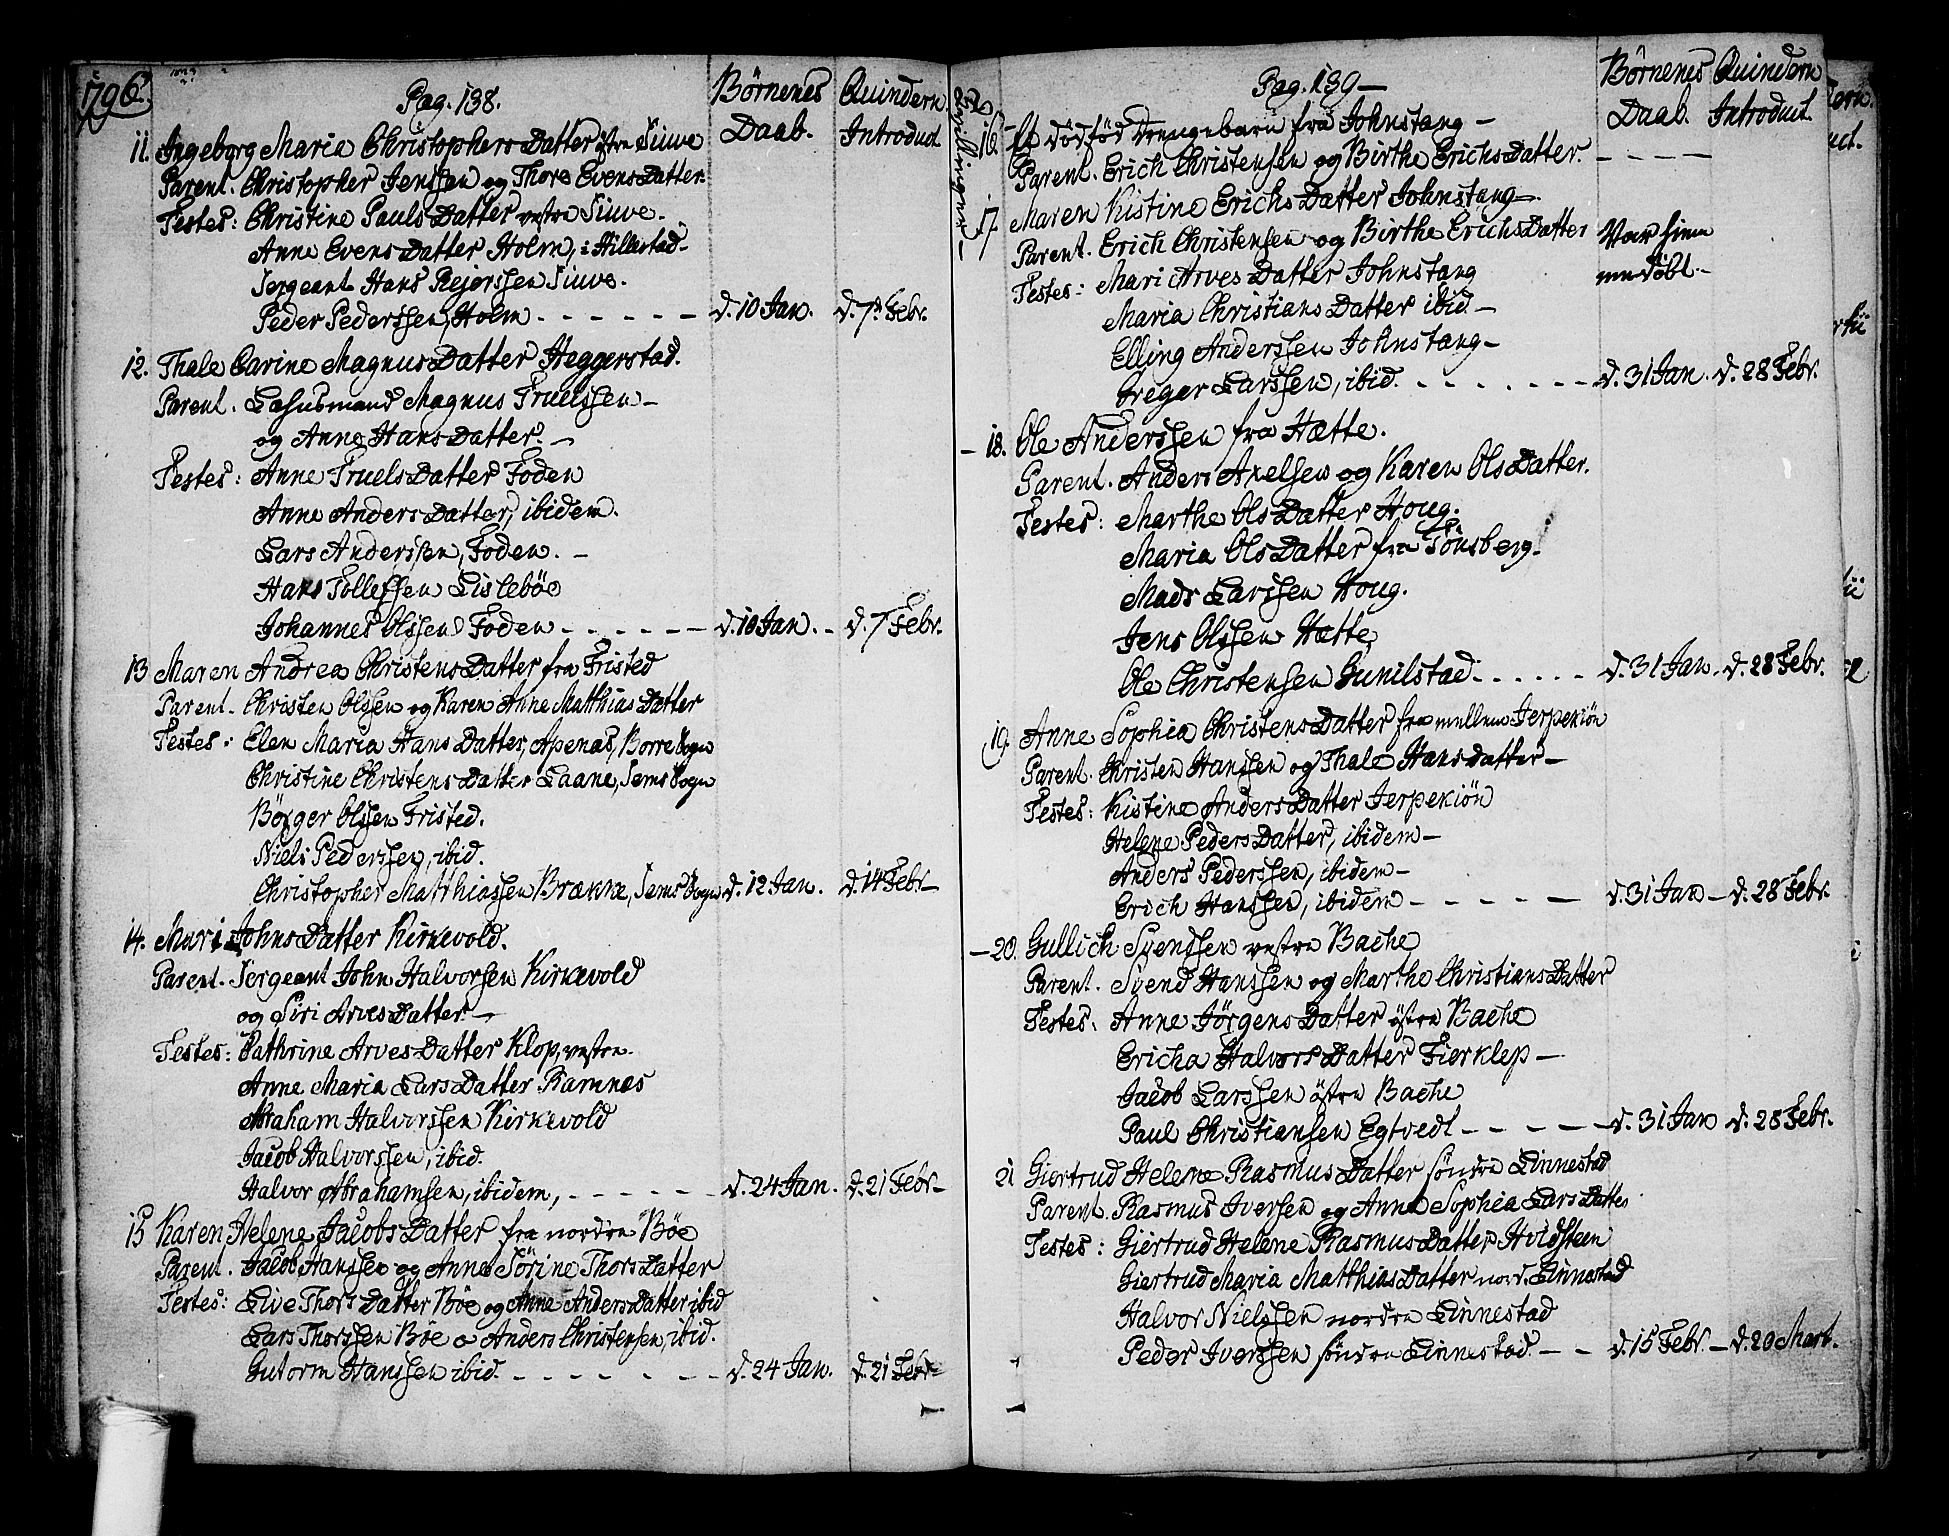 1796.
Pag. 138.
Börnenes Daab.
Quindern Introduct
11. Ingeborg Maria Christophers Datter östre Siuve
Parent. Christopher Jenssen og Thore Evens Datter
Testes: Christine Pauls Datter vestre Siuve.
Anne Evens Datter Holm, i Hillestad
Sergeant Hans Rejerssen Siuve.
Peder Pederssen, Holm - - - - - - d. 10 Jan. d. 7 Febr.
12. Thale Carine Magnus Datter Heggerstad.
Parent. Magnus Truelssen
og Anne Hans Datter. -
Testes: Anne Truels Datter Foden
Anne Anders Datter, ibidem.
Lars Anderssen, Foden. -
Hans Tollefsen Lislebøe
Johannes Olssen Foden - - - - - - d. 10 Jan. - d. 7 Febr.
13 Maren Andrea Christens Datter fra Fristed
Parent. Christen Olssen og Karen Anne Matthias Datter
Testes: Elen Maria Hans Datter, Apenæs, Borre Sogn
Christine Christens Datter Laane, Sems Sogn
Börger Olssen Fristed.
Niels Pederssen, ibid.
Christopher Matthiassen Brække, Sems Sogn d. 12 Jan. d. 14 Febr -
14. Mari Johns Datter Kirkevold.
Parent. Sergeant John Halvorsen Kirkevold
og Siri Arves Datter -
Testes: Cathrine Arves Datter Klop, vestre.
Anne Maria Lars Datter Ramnæs
Abraham Halvorssen Kirkevold
Jacob Halvorssen, ibid.
Halvor Abrahamsen, ibidem, - - - - - - d. 24 Jan. d. 21 Febr -
15 Karen Helene Jacobs Datter fra nordre Böe
Parent. Jacob Hanssen og Anne Sörine Thors Datter
Testes: Live Thors Datter Böe og Anne Anders Datter ibid
Lars Thorssen Böe o Anders Christensen, ibid.
Gutorm Hanssen ibid. - - - - - - d. 24 Jan. d. 21 Febr -
Pag. 139 -
Börnenes Daab.
Quindern Introduct.
16. Et dödföd Drengebarn fra Johnstang -
Parent. Erich Christensen og Birthe Erichs Datter. - - - -
Tvillingerne -
17. Maren Kistine Erichs Datter Johnstang -
Parent. Erich Christensen og Birthe Erichs Datter Var hiem
Testes: Mari Arves Datter Johnstang medöbt. -
Maria Christians Datter ibid -
Elling Anderssen Johnstang -
Gregar Larssen, ibid. - - - - - - d. 31 Jan. d. 28 Febr.
- 18. Ole Anderssen fra Hætte.
Parent. Anders Axelsen og Karen Ols Datter.
Testes: Marthe Ols Datter Houg.
Maria Ols Datter fra Tönsberg.
Mads Larssen Houg.
Jens Olssen Hætte
Ole Christensen Gunilstad. - - - - - - d. 31 Jan. d. 28 Febr.
19. Anne Sophia Christens Datter fra mellem Jerpekiön
Parent. Christen Hanssen og Thale Hans Datter -
Testes: Kistine Anders Datter Jerpekiön
Helene Peders Datter, ibidem -
Anders Pederssen, ibidem -
Erich Hanssen, ibidem - - - - - - d. 31 Jan - d. 28 Febr.
- 20. Gullich Svenssen vestre Bache
Parent. Svend Hanssen og Marthe Christians Datter
Testes. Anne Jörgens Datter östre Bache
Ericha Halvors Datter Fierklep -
Jacob Larssen östre Bache
Paul Christiansen Egtvedt - - - - - d. 31 Jan d. 28 Febr.
21 Giertrud Helene Rasmus Datter söndre Linnestad
Parent. Rasmus Iversen og Anne Sophia Lars Datter
Testes: Giertrud Helene Rasmus Datter Hvidsteen
Giertrud Maria Matthias Datter nord. Linnestad
Halvor Nielssen nordre Linnestad
Peder Iverssen söndre Linnestad - - d. 15 Febr. - d. 20 Mart.